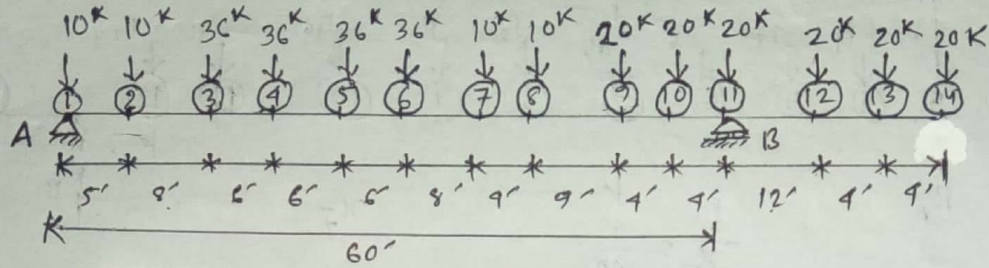 10ᴷ 10ᴷ 36ᴷ 36ᴷ 36ᴷ 36ᴷ 10ᴷ 10ᴷ 20ᴷ 20ᴷ 20ᴷ 20ᴷ 20ᴷ 20K
1 2 3 4 5 6 7 8 9 10 11 12 13 14
A B
5' 8' 6' 6' 6' 8' 4' 9' 4' 4' 12' 4' 4'
60'